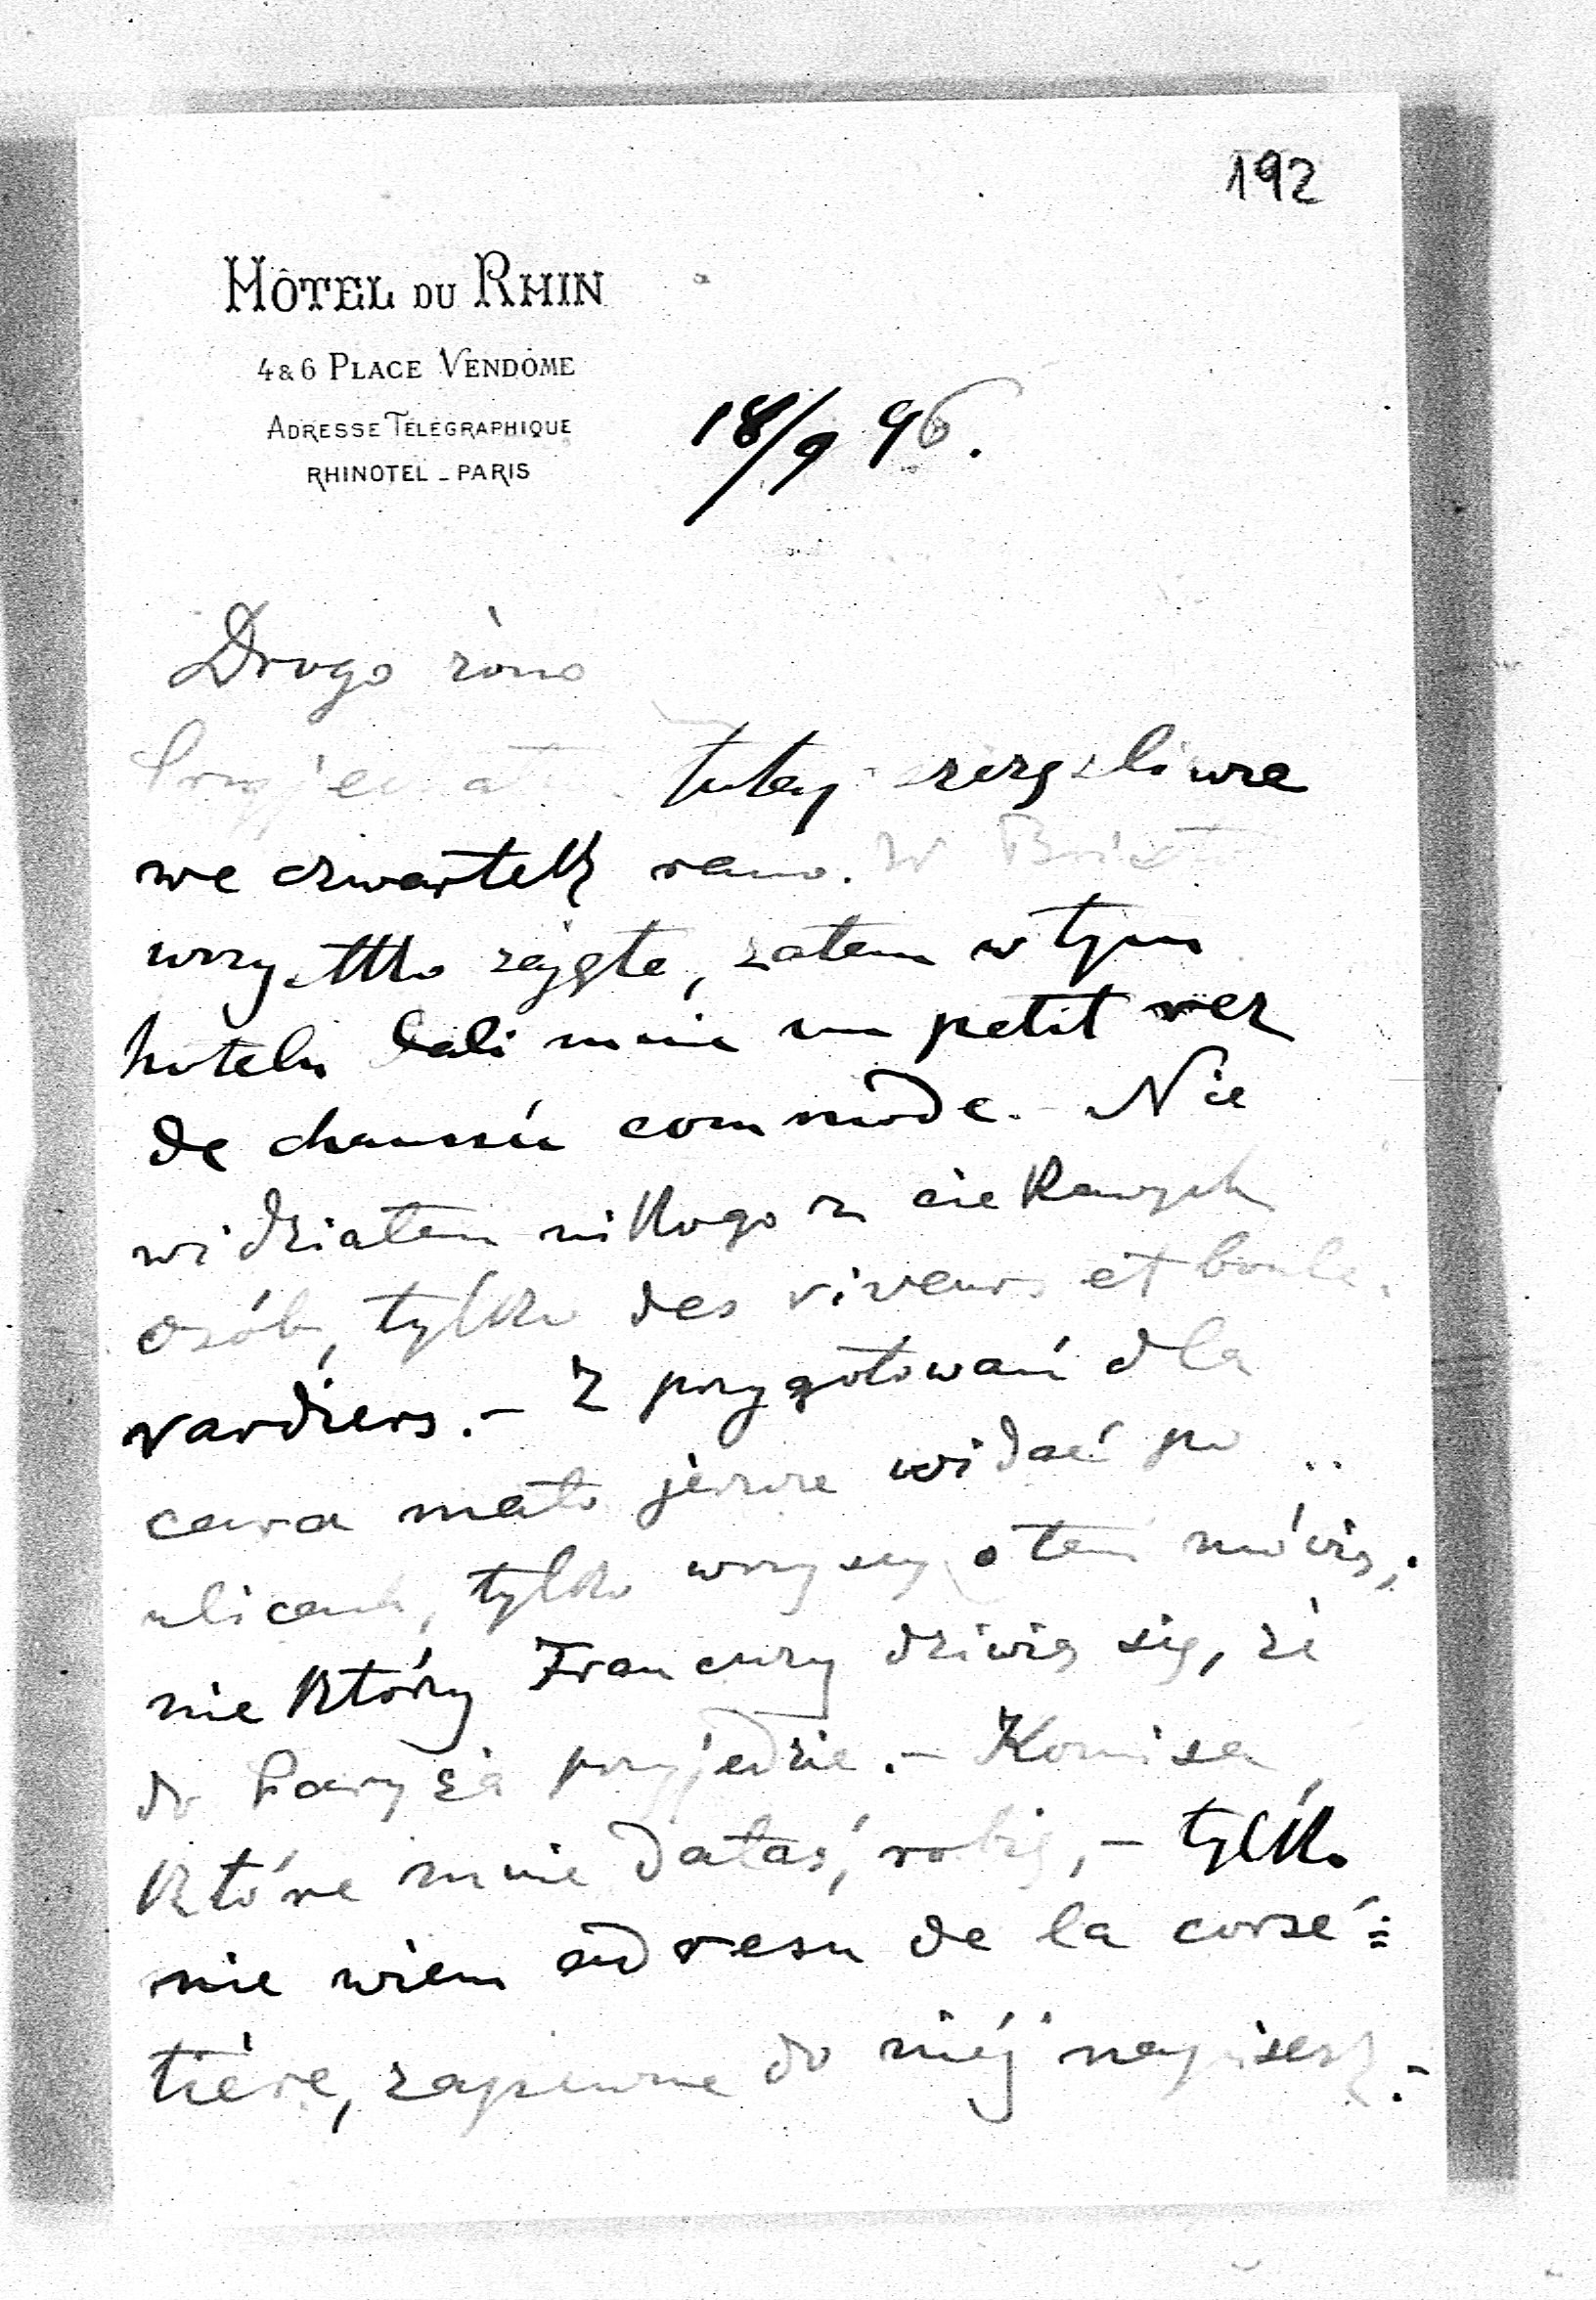 192
HÔTEL DU RHIN
4 & 6 PLACE VENDÔME
ADRESSE TÉLÉGRAPHIQUE
RHINOTEL _ PARIS
18/9 96.
Drogo żòno
tutej szczęśliwie
we czwartek rano. W
wszystko zajęte, zatem w tym
hotelu dali mnie un petit rez
de chaussée commode. - Nie
widziałem nikogo z ciekawych
osób, tylko des viveurs et boule-
vardiers. - Z przygotowań dla
cara mało jeszcze widać po
ulicach, tylko wszyscy o tem mówią;
nie którzy Francuzy dziwią się, że
do Paryża przyjedzie. - Komisa,
które mnie dałaś, robię, - tylko
nie wiem adresu de la corsé=
tière, zapewne do niéj napisesz. -